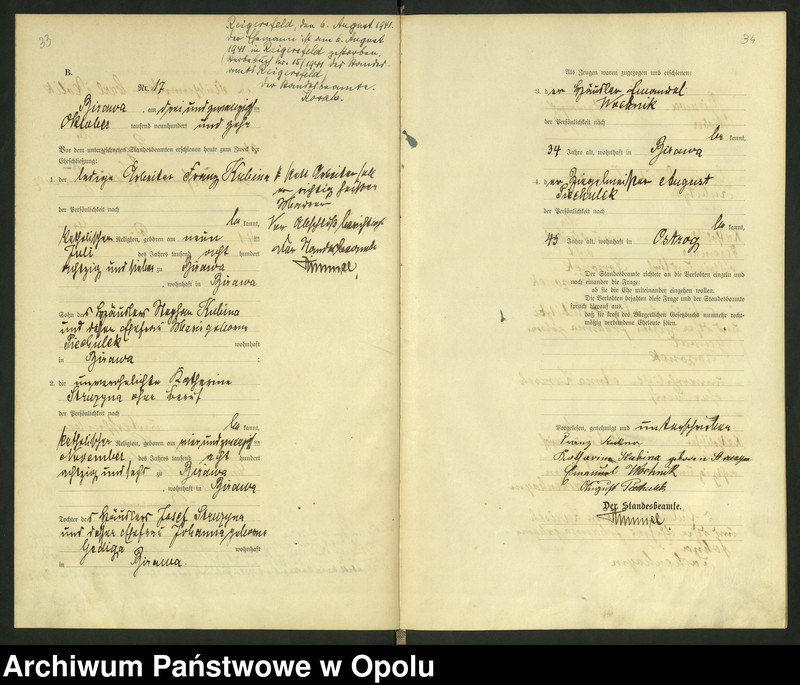 33
Reigersfeld, den 6. August 1941.
Der Ehemann ist am 6. August
1941 in Reigersfeld gestorben.
(Sterbebuch Nr. 15/1941 des Standes-
amts Reigersfeld)
Der Standesbeamte.
B.
Nr. 17
Birawa, am drei und zwanzigsten
Oktober tausend neunhundert und zehn
Vor dem unterzeichneten Standesbeamten erschienen heute zum Zweck der
Eheschließung:
1. der ledige Arbeiter Franz Kubina
der Persönlichkeit nach
bekannt,
katholischer Religion, geboren am neun ten
Juli des Jahres tausend acht hundert
achtzig und sieben zu Birawa
, wohnhaft in Birawa
Sohn des Häuslers Stephan Kubina
und dessen Ehefrau Marie geborene
Piechulek wohnhaft
in Birawa ;
2. die unverehelichte Katharina
Strzyzna ohne Beruf
der Persönlichkeit nach
bekannt,
katholischer Religion, geboren am vier und zwanzigsten
November des Jahres tausend acht hundert
achtzig und sechs zu Birawa
, wohnhaft in Birawa
Tochter des Häuslers Josef Strzyzna
und dessen Ehefrau Johanna geborene
Gediga wohnhaft
in Birawa.
statt Arbeiter soll
es richtig heißen
Maurer
Vor Abschluß berichtigt
Der Standesbeamte
Himmel
36
Als Zeugen waren zugezogen und erschienen:
3. der Häusler Emanuel
Wochnik
der Persönlichkeit nach
bekannt,
34 Jahre alt, wohnhaft in Birawa
4. der Ziegelmeister August
Piechulek
der Persönlichkeit nach
bekannt,
45 Jahre alt, wohnhaft in Ostrog
Der Standesbeamte richtete an die Verlobten einzeln und
nach einander die Frage:
ob sie die Ehe miteinander eingehen wollen.
Die Verlobten bejahten diese Frage und der Standesbeamte
sprach hierauf aus,
daß sie kraft des Bürgerlichen Gesetzbuchs nunmehr recht-
mäßig verbundene Eheleute seien.
Vorgelesen, genehmigt und unterschrieben
Franz Kubina
Katharina Kubina geborene
Emanuel Wochnik
August Piechulek
Der Standesbeamte.
Himmel
Archiwum Państwowe w Opolu